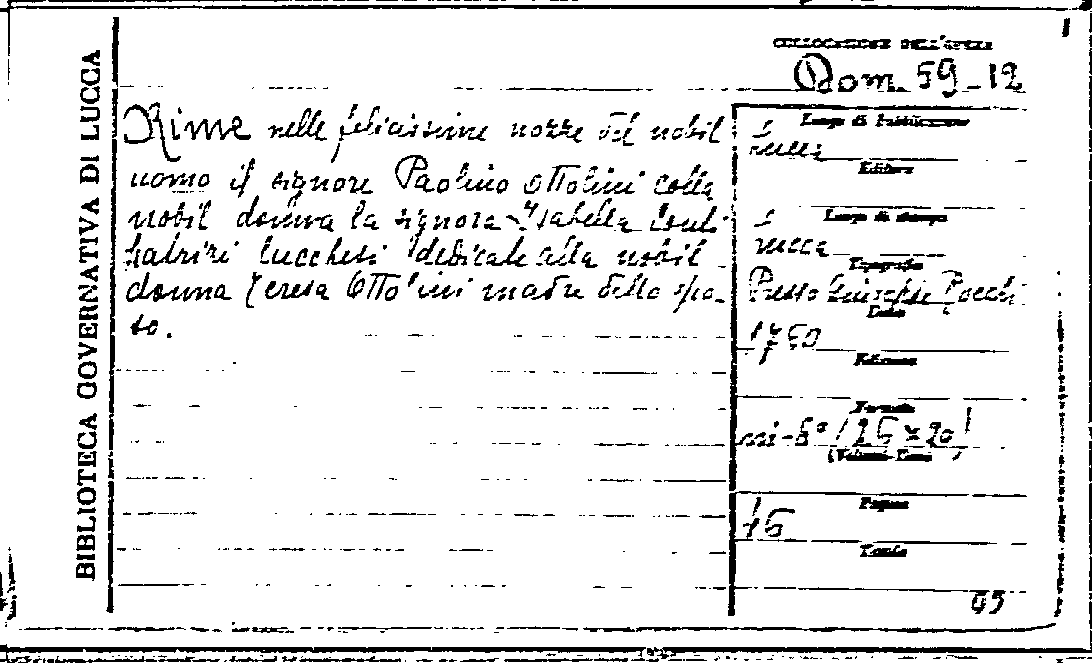 BIBLIOTECA GOVERNATIVA DI LUCCA
COLLOCAZIONE DELL'OPERA
Dom. 59-12
Rime nelle felicissime nozze del nobil
uomo il signore Paolino Ottolini colla
nobil donna la signora Isabella Conti
patrizi lucchesi dedicate alla nobil
donna Teresa Ottolini madre dello spo-
so.
Luogo di Pubblicazione
Lucca
Editore
Luogo di stampa
Lucca
Tipografia
Presso Giuseppe Rocchi
Data
Edizione
Formato
(Volumi-Tomi)
Pagine
Tavole